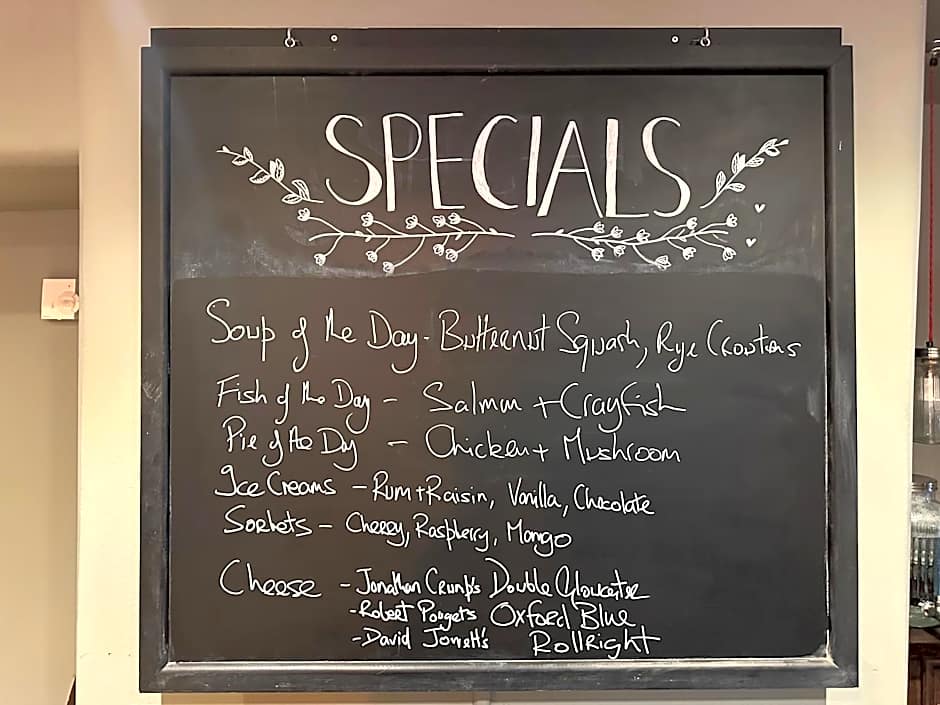 SPECIALS
Soup of the Day - Butternut Squash, Rye Croutons
Fish of the Day - Salmon + Crayfish
Pie of the Day - Chicken + Mushroom
Ice Creams - Rum + Raisin, Vanilla, Chocolate
Sorbets - Cherry, Raspberry, Mango
Cheese - Jonathan Crump's Double Gloucester
- Robert Pouget's Oxford Blue
- David Jowett's Rollright